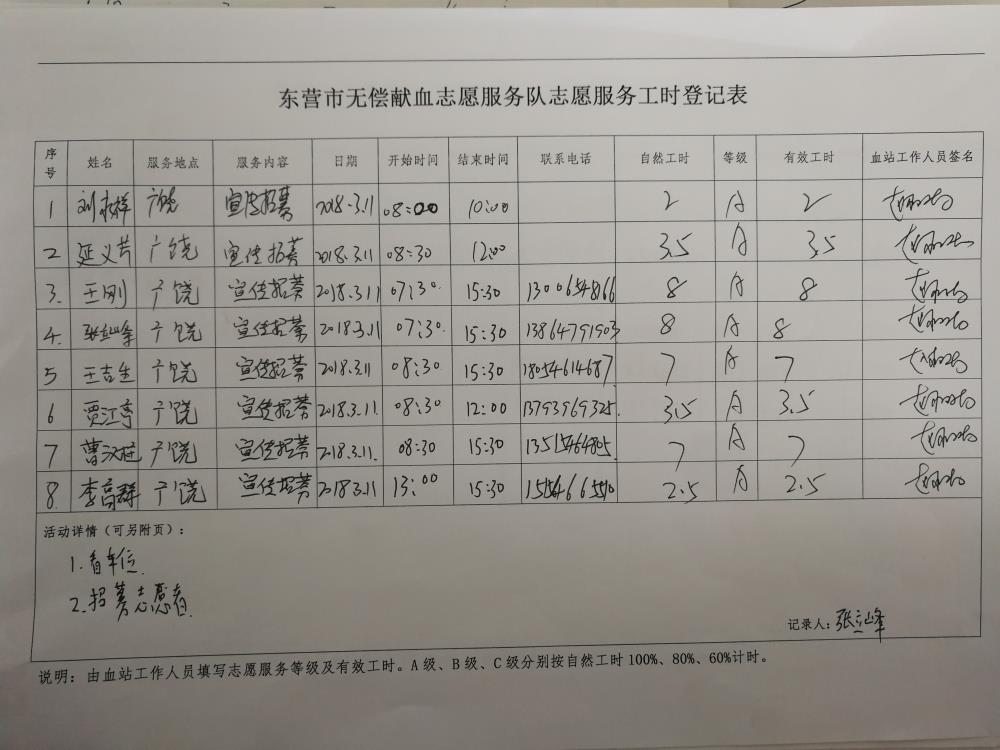 东营市无偿献血志愿服务队志愿服务工时登记表
序号 姓名 服务地点 服务内容 日期 开始时间 结束时间 联系电话 自然工时 等级 有效工时 血站工作人员签名
1 刘永祥 广饶 宣传招募 2018.3.11 08:00 10:00 2 A 2
2 延义芹 广饶 宣传招募 2018.3.11 08:30 12:00 3.5 A 3.5
3. 王刚 广饶 宣传招募 2018.3.11 07:30. 15:30 13006548166 8 A 8
4. 张立峰 广饶 宣传招募 2018.3.11 07:30. 15:30 13864791903 8 A 8
5 王吉生 广饶 宣传招募 2018.3.11 08:30 15:30 18054614687 7 A 7
6 贾江亭 广饶 宣传招募 2018.3.11. 08:30 12:00 13793969325. 3.5 A 3.5
7 广饶 宣传招募 2018.3.11. 08:30 15:30 7 A 7
8. 李高群 广饶 宣传招募 2018.3.11 13:00 15:30 2.5 A 2.5
活动详情（可另附页）：
1. 看车位.
2. 招募志愿者.
记录人：张立峰
说明：由血站工作人员填写志愿服务等级及有效工时。A级、B级、C级分别按自然工时100%、80%、60%计时。